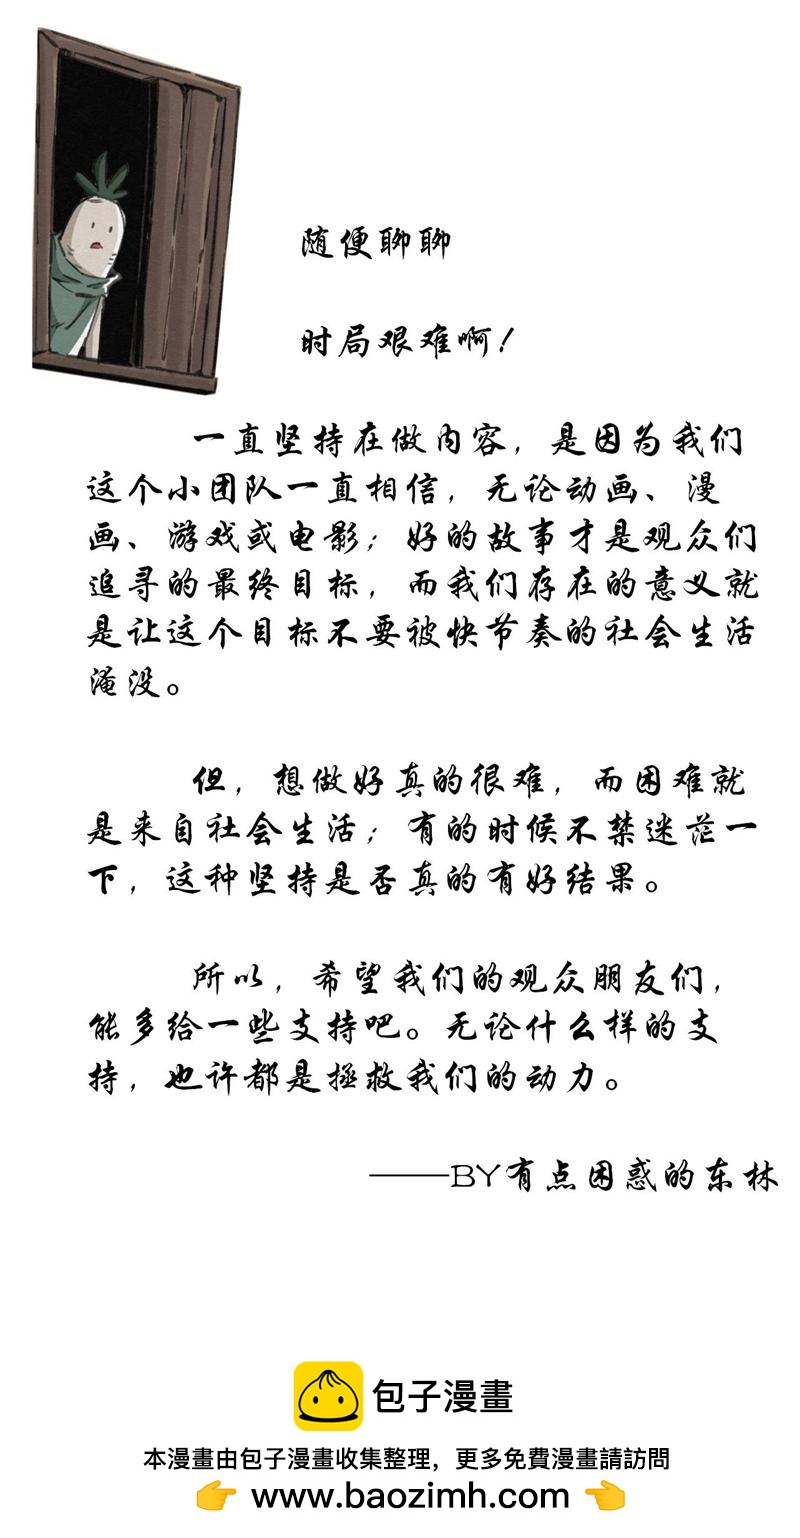 随便聊聊
时局艰难啊！
一直坚持在做内容，是因为我们
这个小团队一直相信，无论动画、漫
画、游戏或电影；好的故事才是观众们
追寻的最终目标，而我们存在的意义就
是让这个目标不要被快节奏的社会生活
淹没。
但，想做好真的很难，而困难就
是来自社会生活；有的时候不禁迷茫一
下，这种坚持是否真的有好结果。
所以，希望我们的观众朋友们，
能多给一些支持吧。无论什么样的支
持，也许都是拯救我们的动力。
——BY有点困惑的东林
包子漫畫
本漫畫由包子漫畫收集整理，更多免費漫畫請訪問
👉 www.baozimh.com 👈